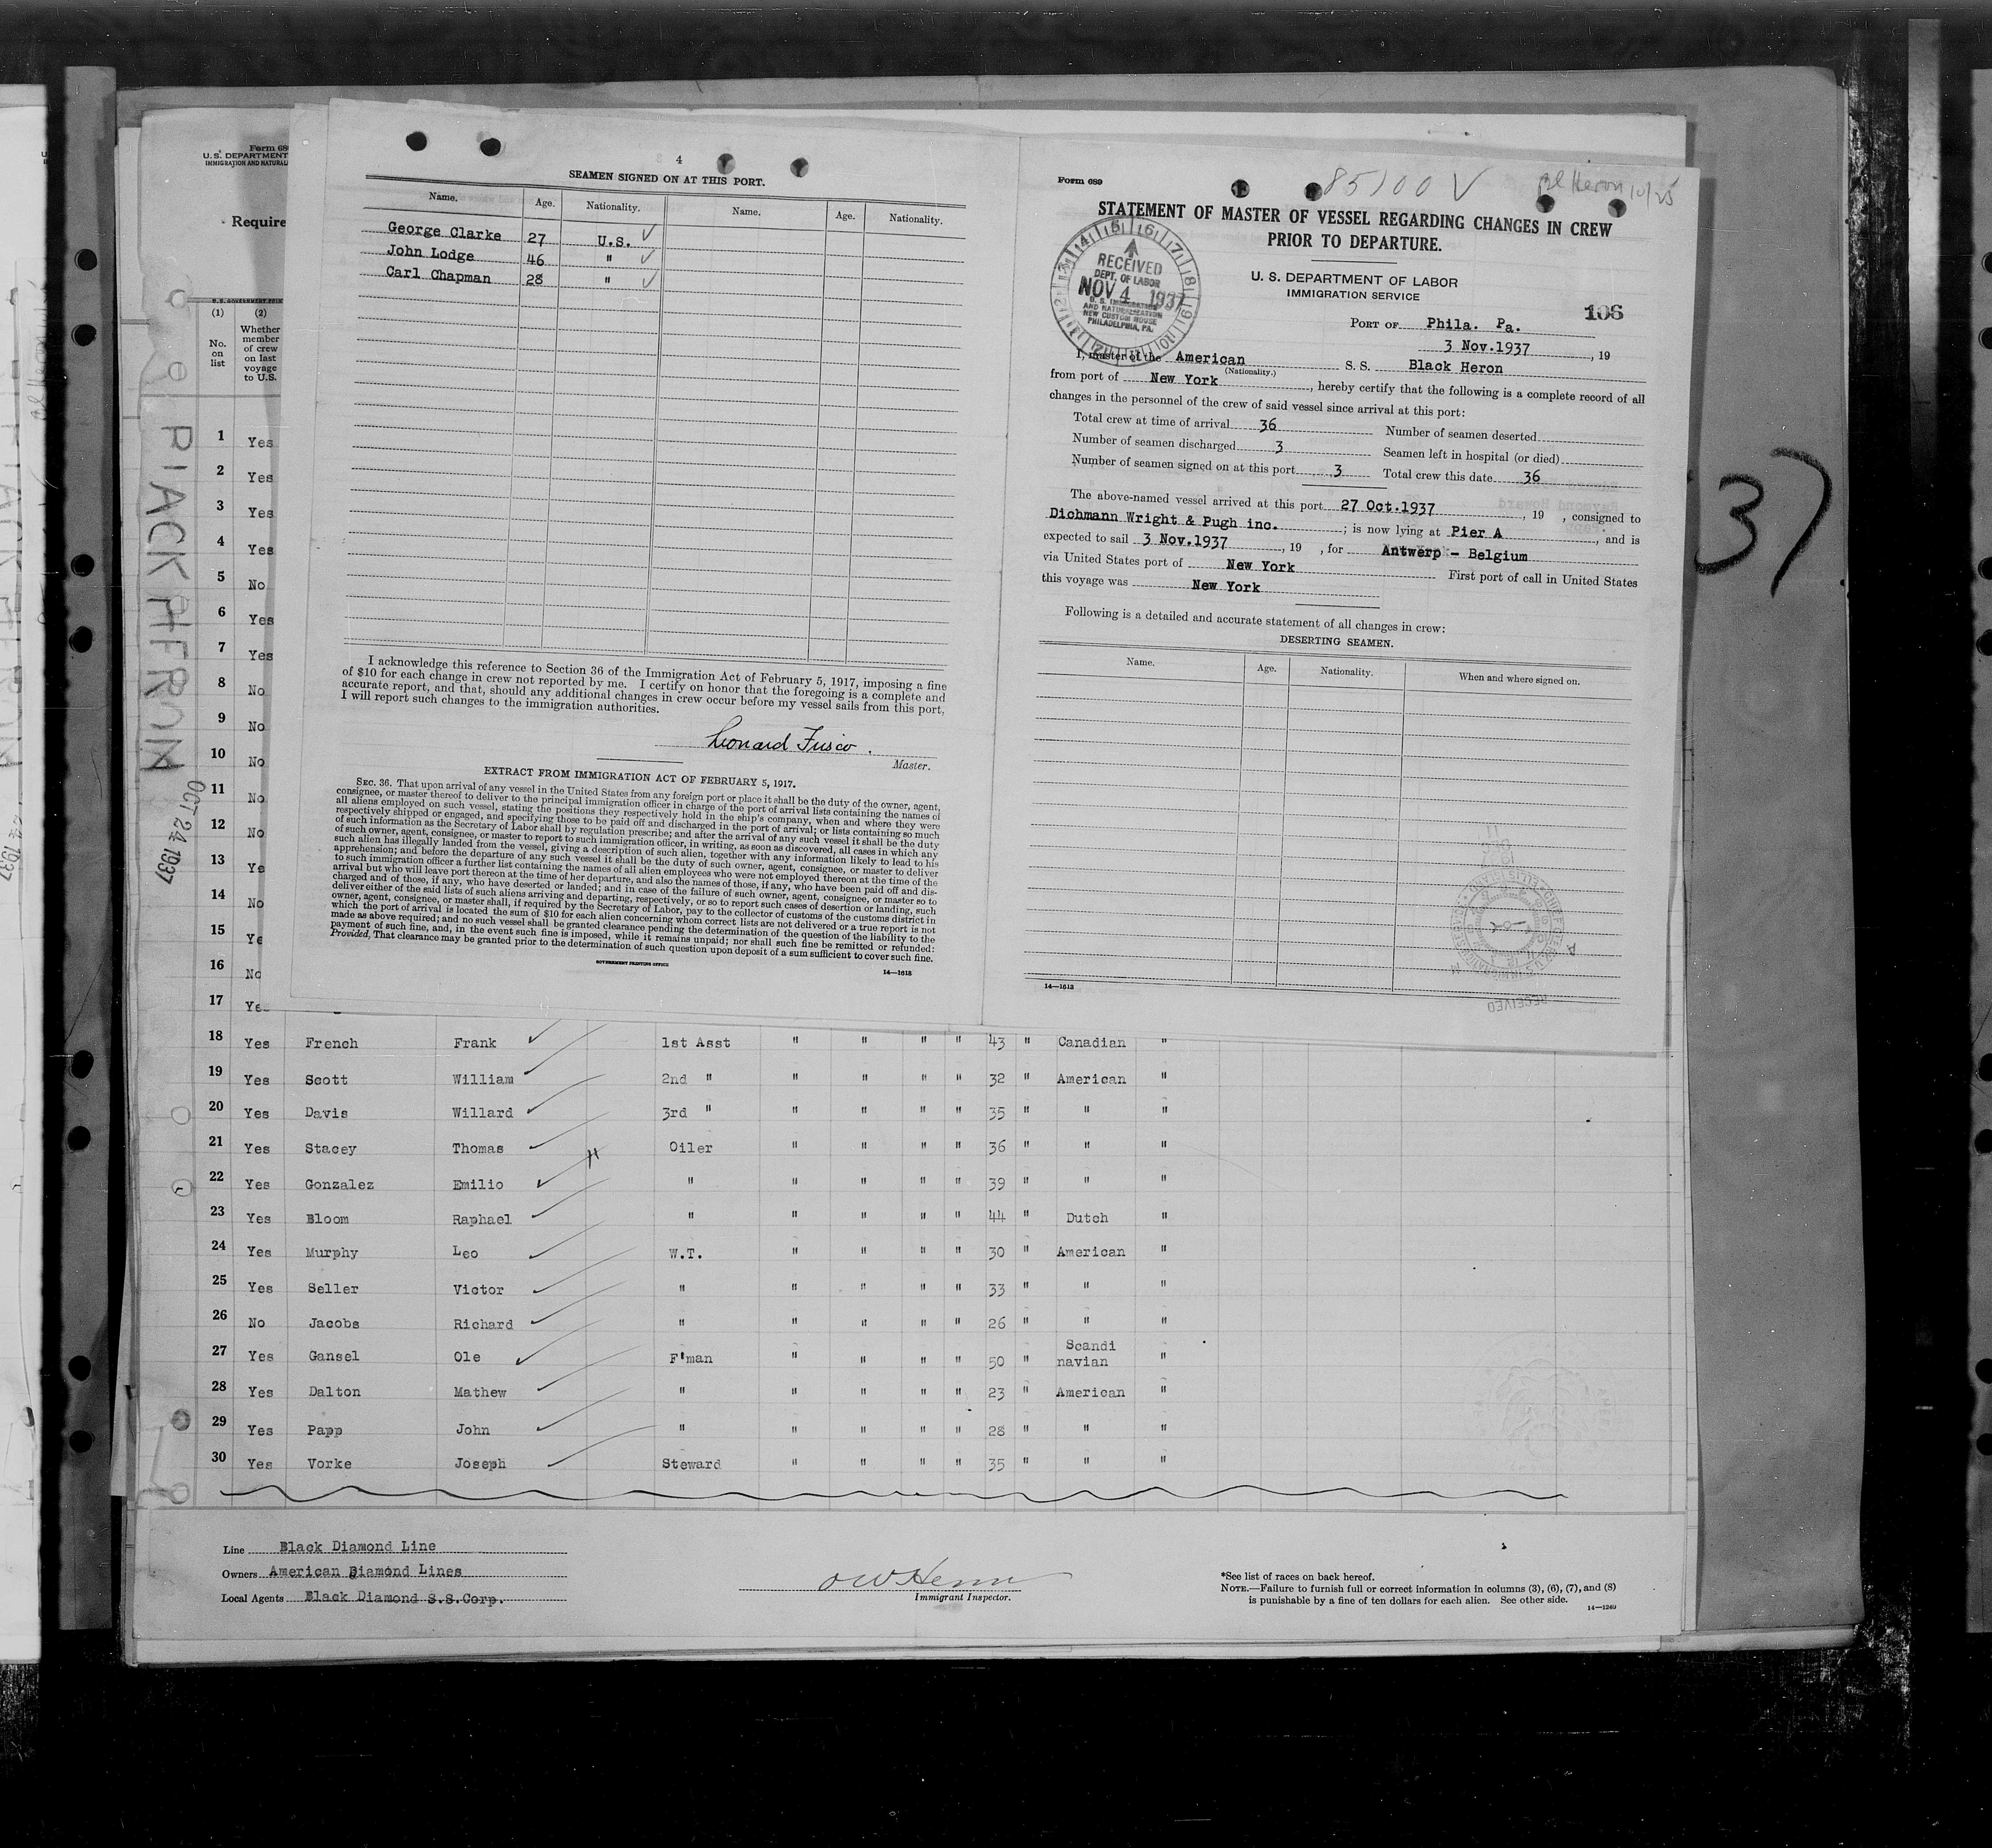 4
SEAMEN SIGNED ON AT THIS PORT.
Name. Age. Nationality. Name. Age. Nationality.
George Clarke 27 U.S.
John Lodge 46 "
Carl Chapman 28 "
I acknowledge this reference to Section 36 of the Immigration Act of February 5, 1917, imposing a fine
of $10 for each change in crew not reported by me. I certify on honor that the foregoing is a complete and
accurate report, and that, should any additional changes in crew occur before my vessel sails from this port,
I will report such changes to the immigration authorities.
Leonard Fusco.
Master.
EXTRACT FROM IMMIGRATION ACT OF FEBRUARY 5, 1917.
SEC. 36. That upon arrival of any vessel in the United States from any foreign port or place it shall be the duty of the owner, agent,
consignee, or master thereof to deliver to the principal immigration officer in charge of the port of arrival lists containing the names of
all aliens employed on such vessel, stating the positions they respectively hold in the ship's company, when and where they were
respectively shipped or engaged, and specifying those to be paid off and discharged in the port of arrival; or lists containing so much
of such information as the Secretary of Labor shall by regulation prescribe; and after the arrival of any such vessel it shall be the duty
of such owner, agent, consignee, or master to report to such immigration officer, in writing, as soon as discovered, all cases in which any
such alien has illegally landed from the vessel, giving a description of such alien, together with any information likely to lead to his
apprehension; and before the departure of any such vessel it shall be the duty of such owner, agent, consignee, or master to deliver
to such immigration officer a further list containing the names of all alien employees who were not employed thereon at the time of the
arrival but who will leave port thereon at the time of her departure, and also the names of those, if any, who have been paid off and dis-
charged and of those, if any, who have deserted or landed; and in case of the failure of such owner, agent, consignee, or master so to
deliver either of the said lists of such aliens arriving and departing, respectively, or so to report such cases of desertion or landing, such
owner, agent, consignee, or master shall, if required by the Secretary of Labor, pay to the collector of customs of the customs district in
which the port of arrival is located the sum of $10 for each alien concerning whom correct lists are not delivered or a true report is not
made as above required; and no such vessel shall be granted clearance pending the determination of the question of the liability to the
payment of such fine, and, in the event such fine is imposed, while it remains unpaid; nor shall such fine be remitted or refunded:
Provided, That clearance may be granted prior to the determination of such question upon deposit of a sum sufficient to cover such fine.
GOVERNMENT PRINTING OFFICE
14—1613
Form 689
85100 V
Bl Heron 10/25
STATEMENT OF MASTER OF VESSEL REGARDING CHANGES IN CREW
PRIOR TO DEPARTURE.
U. S. DEPARTMENT OF LABOR
IMMIGRATION SERVICE
RECEIVED
DEPT. OF LABOR
NOV 4 1937
U. S. IMMIGRATION
AND NATURALIZATION
NEW CUSTOM HOUSE
PHILADELPHIA, PA.
106
PORT OF Phila. Pa.
3 Nov.1937, 19
I, master of the American S. S. Black Heron
(Nationality.)
from port of New York, hereby certify that the following is a complete record of all
changes in the personnel of the crew of said vessel since arrival at this port:
Total crew at time of arrival 36 Number of seamen deserted
Number of seamen discharged 3 Seamen left in hospital (or died)
Number of seamen signed on at this port 3 Total crew this date 36
The above-named vessel arrived at this port 27 Oct.1937, 19 , consigned to
Dichmann Wright & Pugh inc. ; is now lying at Pier A, and is
expected to sail 3 Nov.1937, 19 , for Antwerp - Belgium
via United States port of New York First port of call in United States
this voyage was New York
Following is a detailed and accurate statement of all changes in crew:
DESERTING SEAMEN.
Name. Age. Nationality. When and where signed on.
14—1613
RECEIVED
37
Form 68
U. S. DEPARTMENT
IMMIGRATION AND NATURAL
Require
(1) (2)
No. on list
Whether member of crew on last voyage to U.S.
BLACK HERON
OCT 24 1937
1 Yes
2 Yes
3 Yes
4 Yes
5 No
6 Yes
7 Yes
8 No
9 No
10 No
11 No
12 No
13 Ye
14 No
15 Ye
16 No
17 Ye
18 Yes French Frank 1st Asst " " " " 43 " Canadian "
19 Yes Scott William 2nd " " " " " 32 " American "
20 Yes Davis Willard 3rd " " " " " 35 " " "
21 Yes Stacey Thomas Oiler " " " " 36 " " "
22 Yes Gonzalez Emilio " " " " " 39 " " "
23 Yes Bloom Raphael " " " " " 44 " Dutch "
24 Yes Murphy Leo W.T. " " " " 30 " American "
25 Yes Seller Victor " " " " " 33 " " "
26 No Jacobs Richard " " " " " 26 " " "
27 Yes Gansel Ole F'man " " " " 50 " Scandi navian "
28 Yes Dalton Mathew " " " " " 23 " American "
29 Yes Papp John " " " " " 28 " " "
30 Yes Vorke Joseph Steward " " " " 35 " " "
Line Black Diamond Line
Owners American Diamond Lines
Local Agents Black Diamond S.S.Corp.
Immigrant Inspector.
*See list of races on back hereof.
NOTE.—Failure to furnish full or correct information in columns (3), (6), (7), and (8)
is punishable by a fine of ten dollars for each alien. See other side.
14—1269